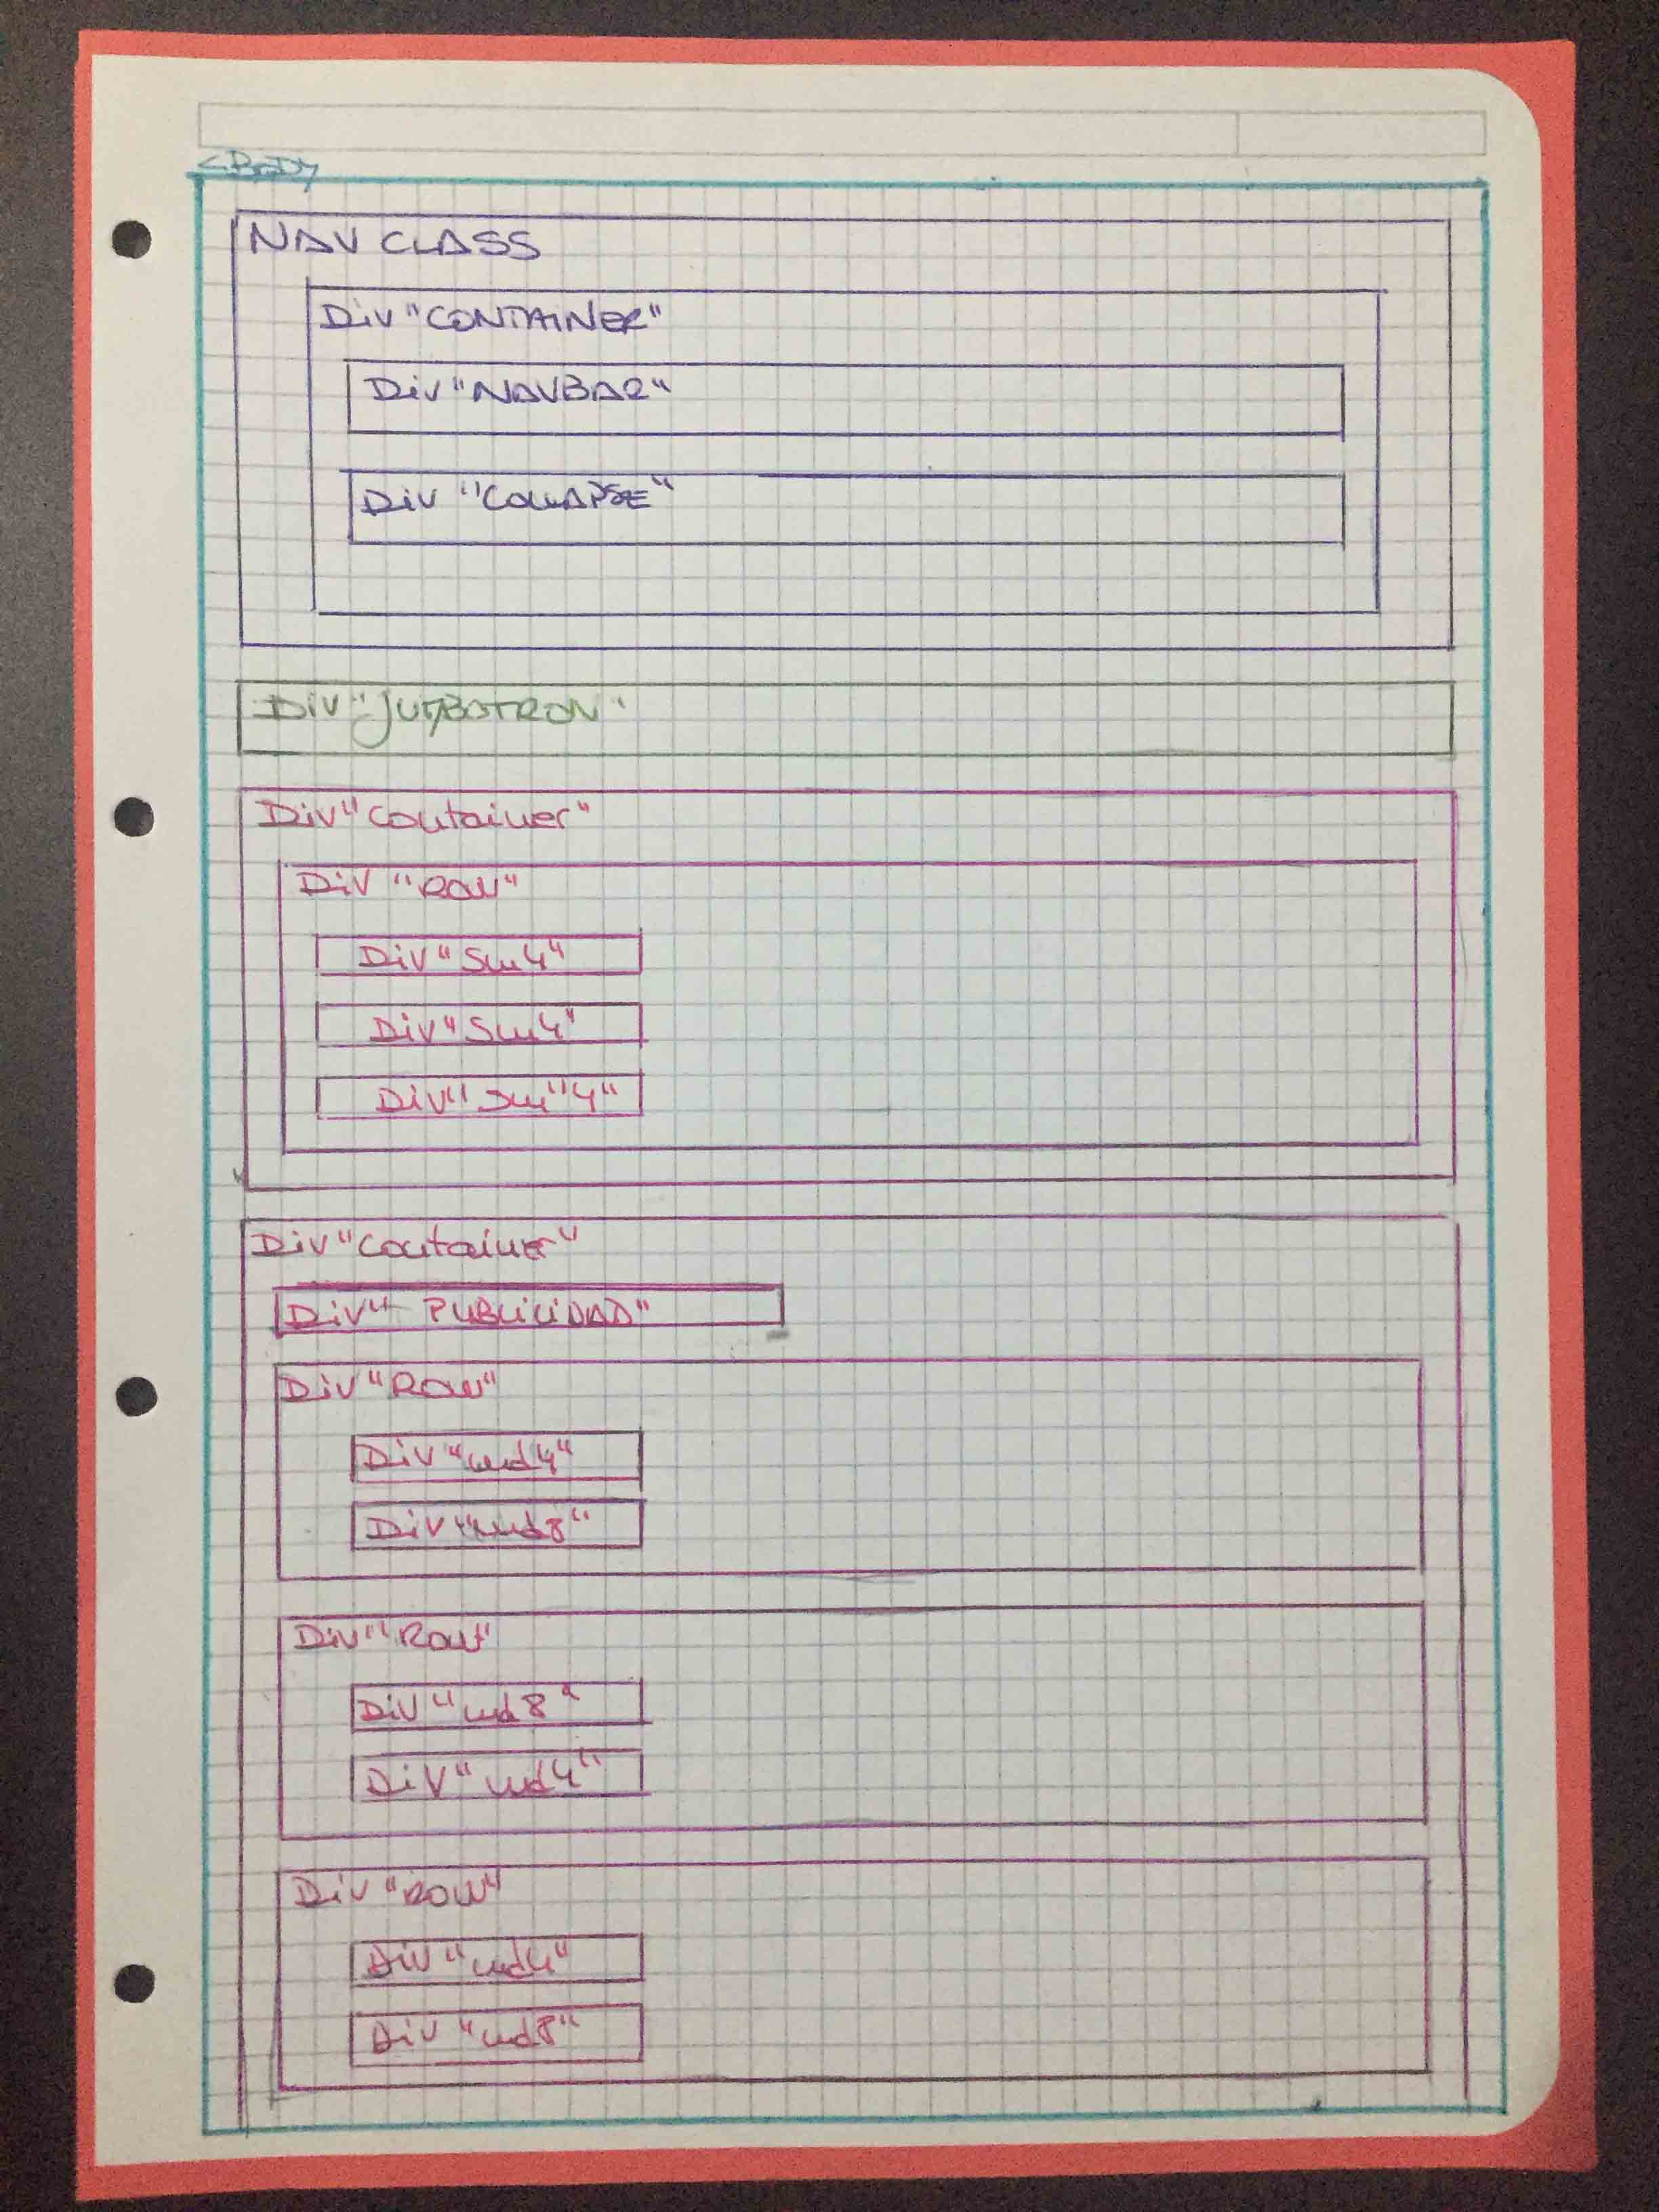 <BODY
NAV CLASS
Div "CONTAINER"
Div "NAVBAR"
Div "COLLAPSE"
Div "JUMBOTRON"
Div "Container"
Div "ROW"
Div "Sm4"
Div "Sm4"
Div "Sm"4"
Div "Container"
Div "PUBLICIDAD"
Div "ROW"
Div "md4"
Div "md8"
Div "Row"
Div "md8"
Div "md4"
Div "ROW"
Div "md4"
Div "md8"